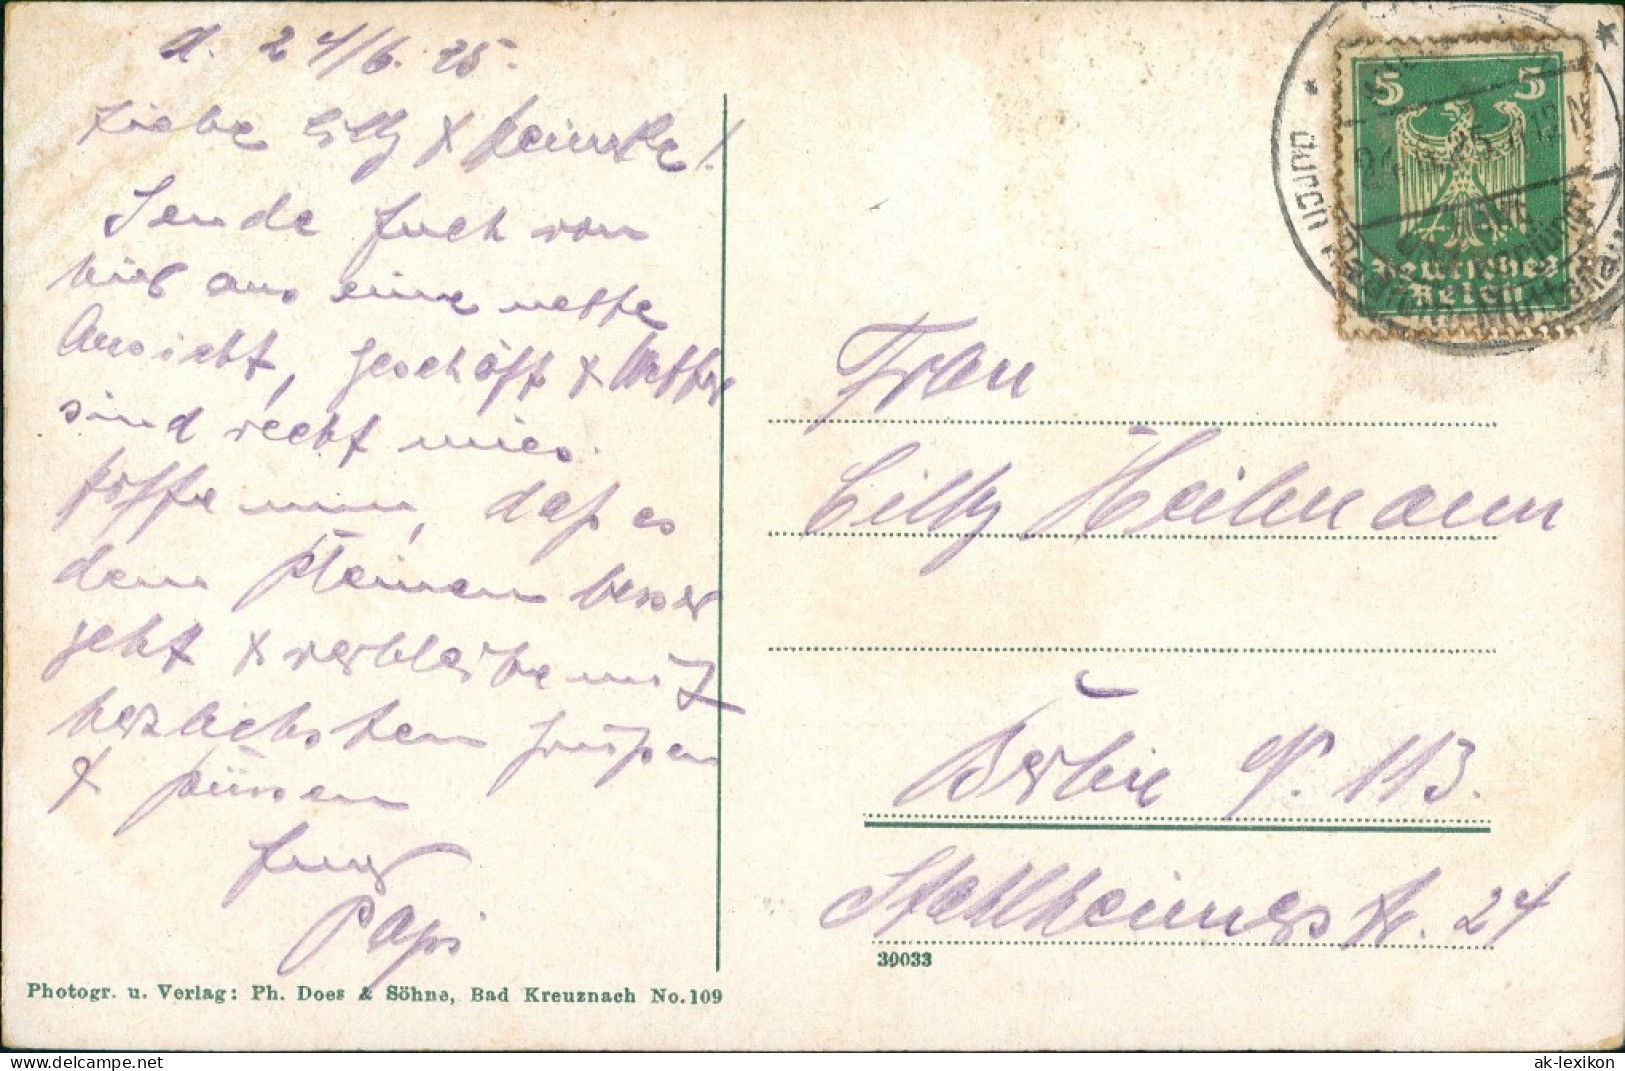 d. 24/6. 25.
Liebe Cilly & Heinzke!
Sende Euch von
hier aus eine nette
Ansicht, Geschäft & Wetter
sind recht mies.
Hoffe nun, daß es
dem Kleinen besser
geht & verbleibe mit
herzlichsten Grüßen
& Küssen
Euer
Papi
Photogr. u. Verlag: Ph. Does & Söhne, Bad Kreuznach No. 109
5 5
Deutsches
Reich
Frau
Cilly Heilmann
Berlin N. 113.
Stahlheimer Str. 24
30033
delcampe.net
ak-lexikon